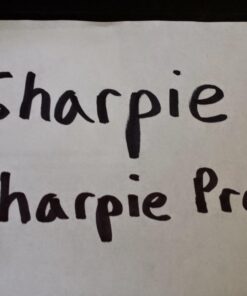 Sharpie
harpie Pro